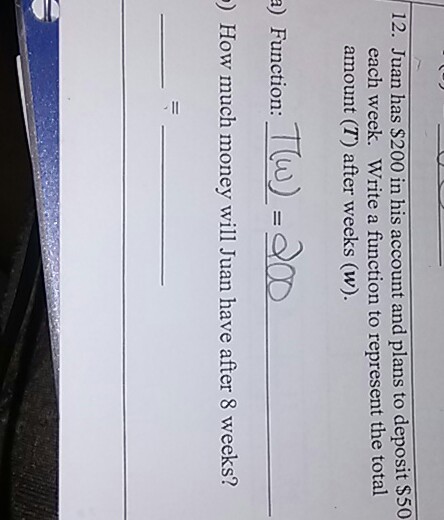 12. Juan has $200 in his account and plans to deposit $50
each week. Write a function to represent the total
amount (T) after weeks (w).
a) Function: T(w) = 200
) How much money will Juan have after 8 weeks?
=